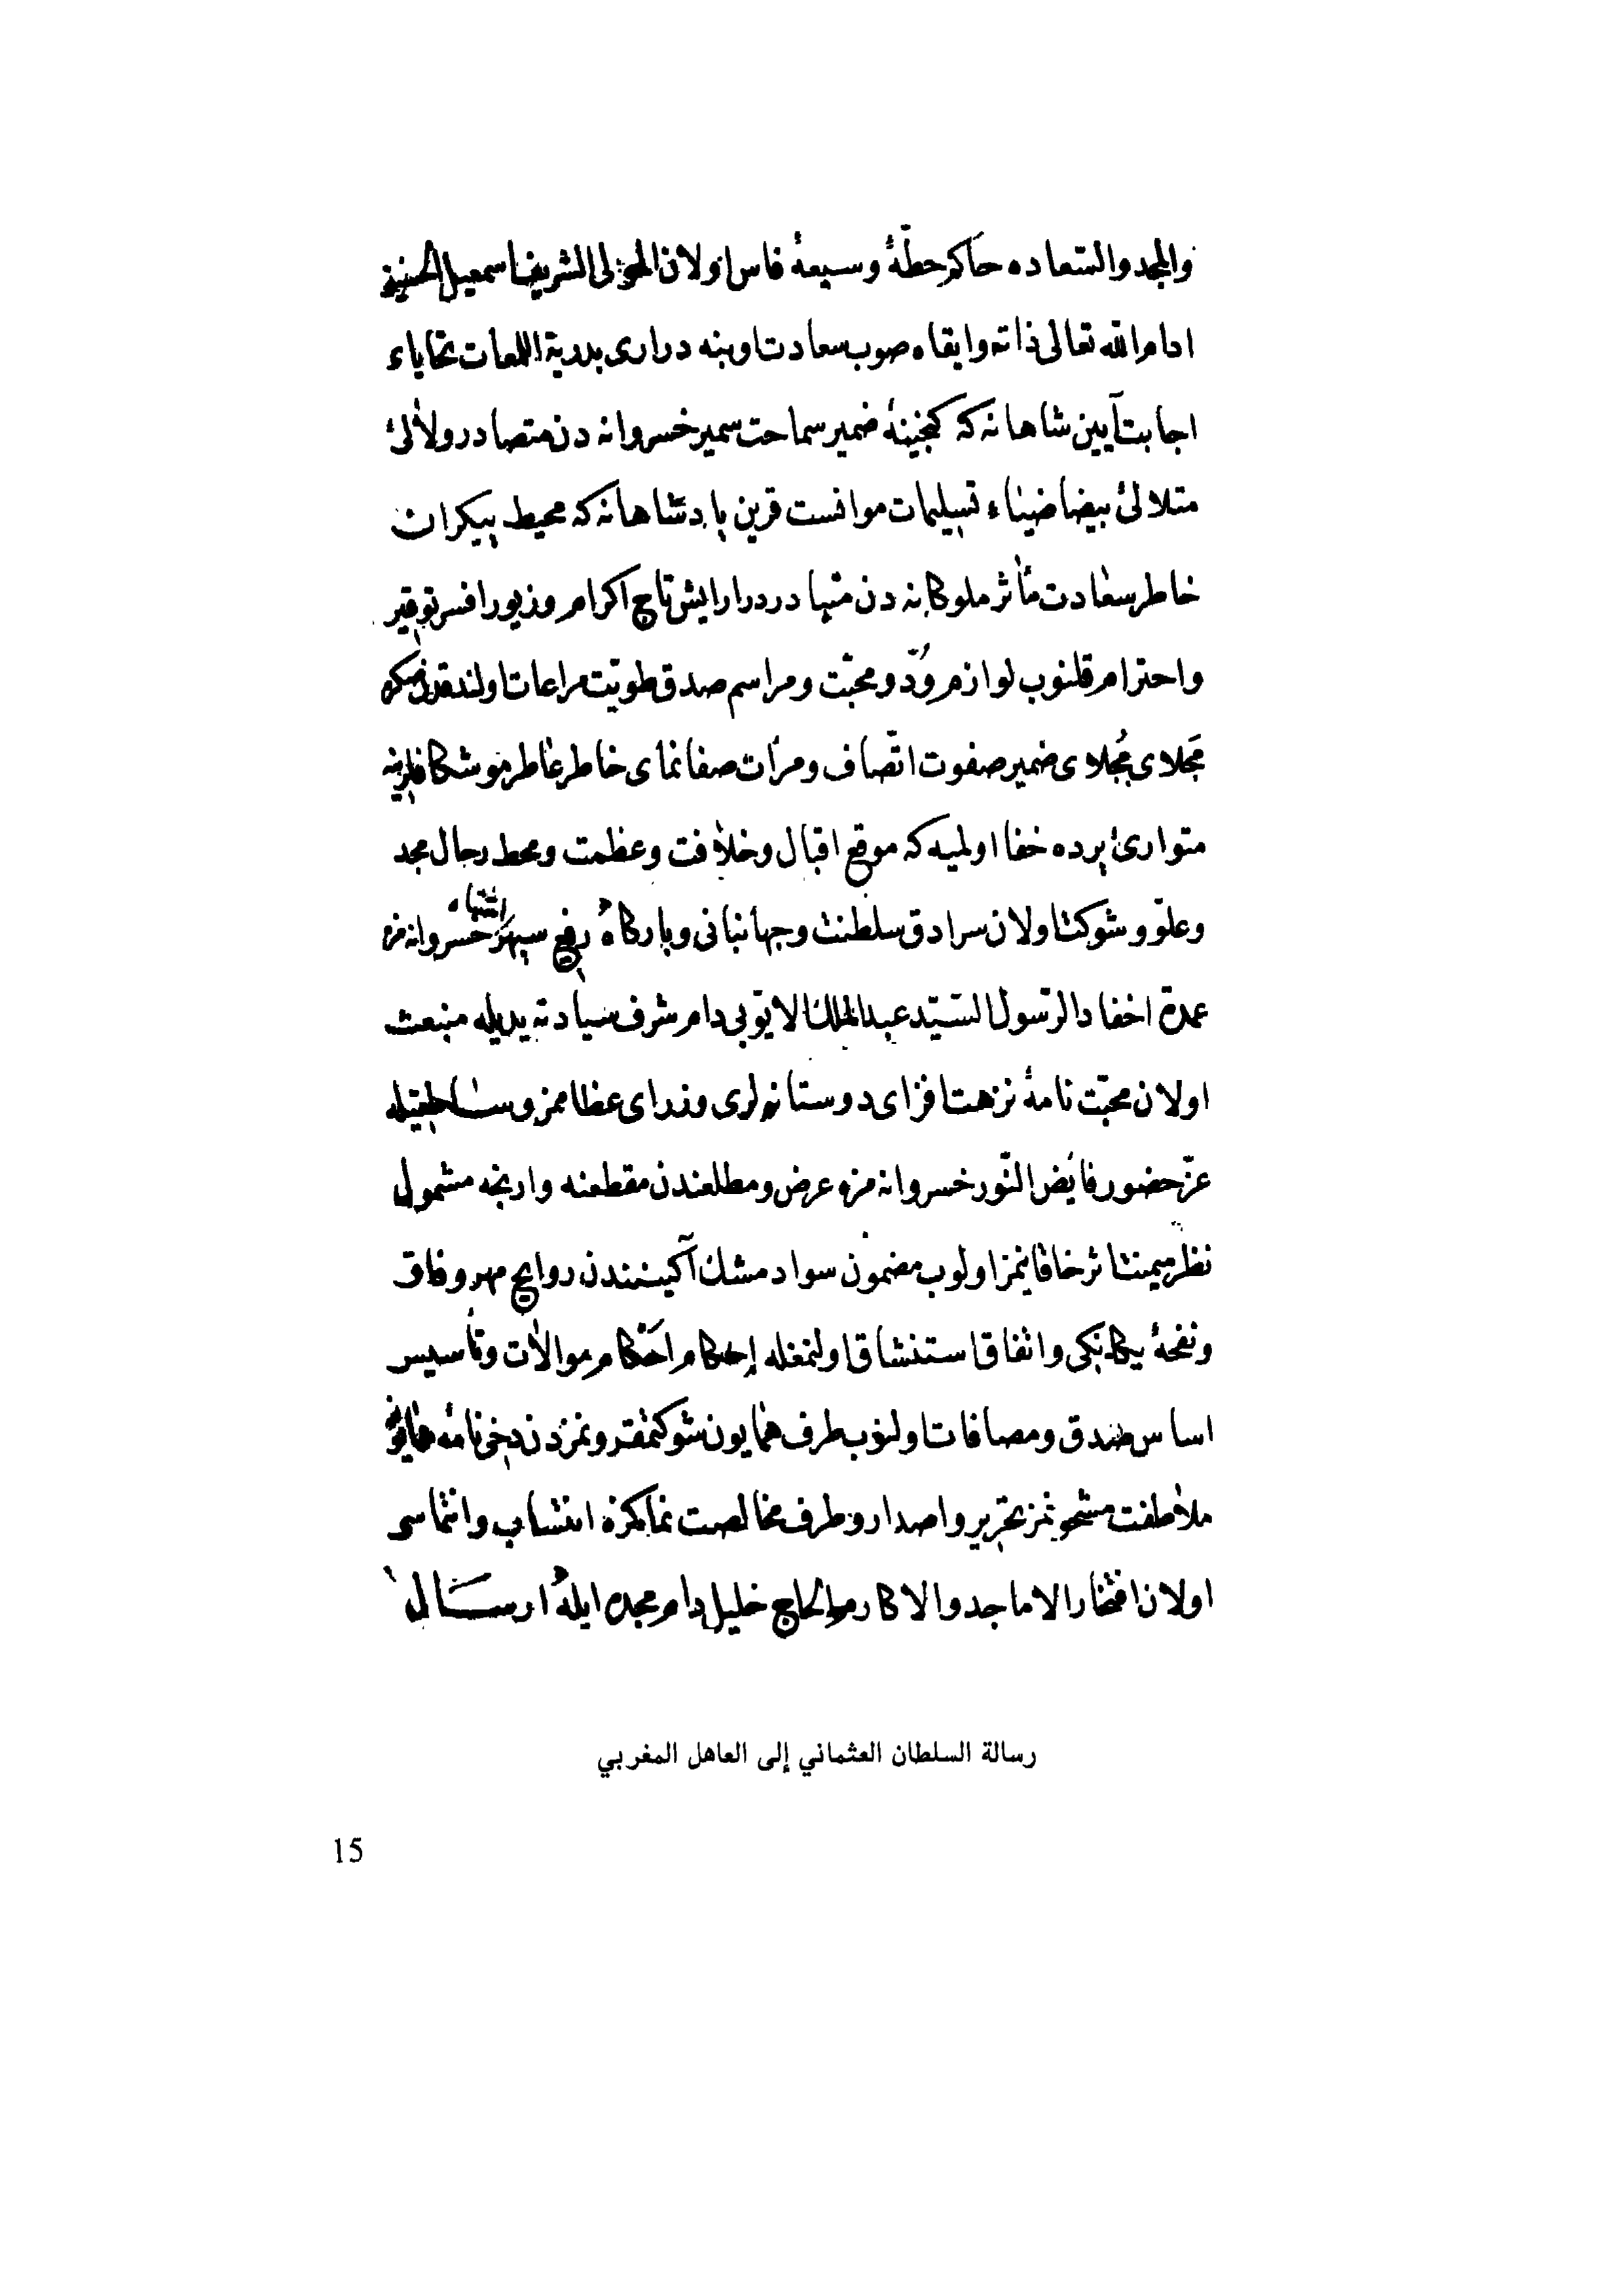 والمجد والسّعاده حاكم حطّهٔ وسیعهٔ فاس اولان المولی الشریف اسمعیل الحسنیه
ادام الله تعالی ذاته وابقاه صوب سعادت اوبنه دراری بدریة اللمعات تحایاء
اجابت آیین شاهانه که کنجینهٔ ضمیر سماحت سمیر خسروانه دن متصادر ولآلئ
متلالئ بیضا ضیاء تسلیمات موانست قرین پادشاهانه که محیط بیکران
خاطر سعادت مآثر ملوکانه دن متبادر در ارایش تاج اکرام وزیور افسر توقیر
واحترام قلنوب لوازم وُدّ ومحبّت ومراسم صدق طویّت مراعات اولندقدنصکره
مَجلای مُجلای ضمیر صفوت اتّصاف ومرآت صفانمای خاطر عاطر موشکافلرینه
متوارئ پرده خفا اولمیه که موقع اقبال وخلافت وعظمت ومحط رجال مجد
وعلوّ وشوکت اولان سرادق سلطنت وجهانبانی وبارکاه رفیع سپهر اشتباه خسروانه مزه
عمدة احفاد الرّسول السّیّد عبدالملك الایّوبی دام شرف سیادته یدیله منبعث
اولان محبّت نامهٔ نزهت افزای دوستانه لری وزرای عظاممز وساطتیله
عزّ حضور فایض النّور خسروانه مزه عرض ومطلعندن مقطعنه وارنجه مشمول
نظر میمنت اثر خاقانیمز اولوب مضمون سواد مشك آکینندن روایح مهر وفاق
ونفحهٔ یکانکی واتفاق استنشاق اولنمغله إحکام احکام موالات وتأسیس
اساس صدق ومصافات اولنوب طرف همایون شوکتمقرونمزدن دخی نامه همایون
ملاطفت مشحونمز تحریر واصدار وطرف مخالصت نماکزه انتساب وانتماسی
اولان افتخار الاماجد والاکارم الحاج خلیل دام مجده ایله ارسال
رسالة السلطان العثماني إلى العاهل المغربي
15